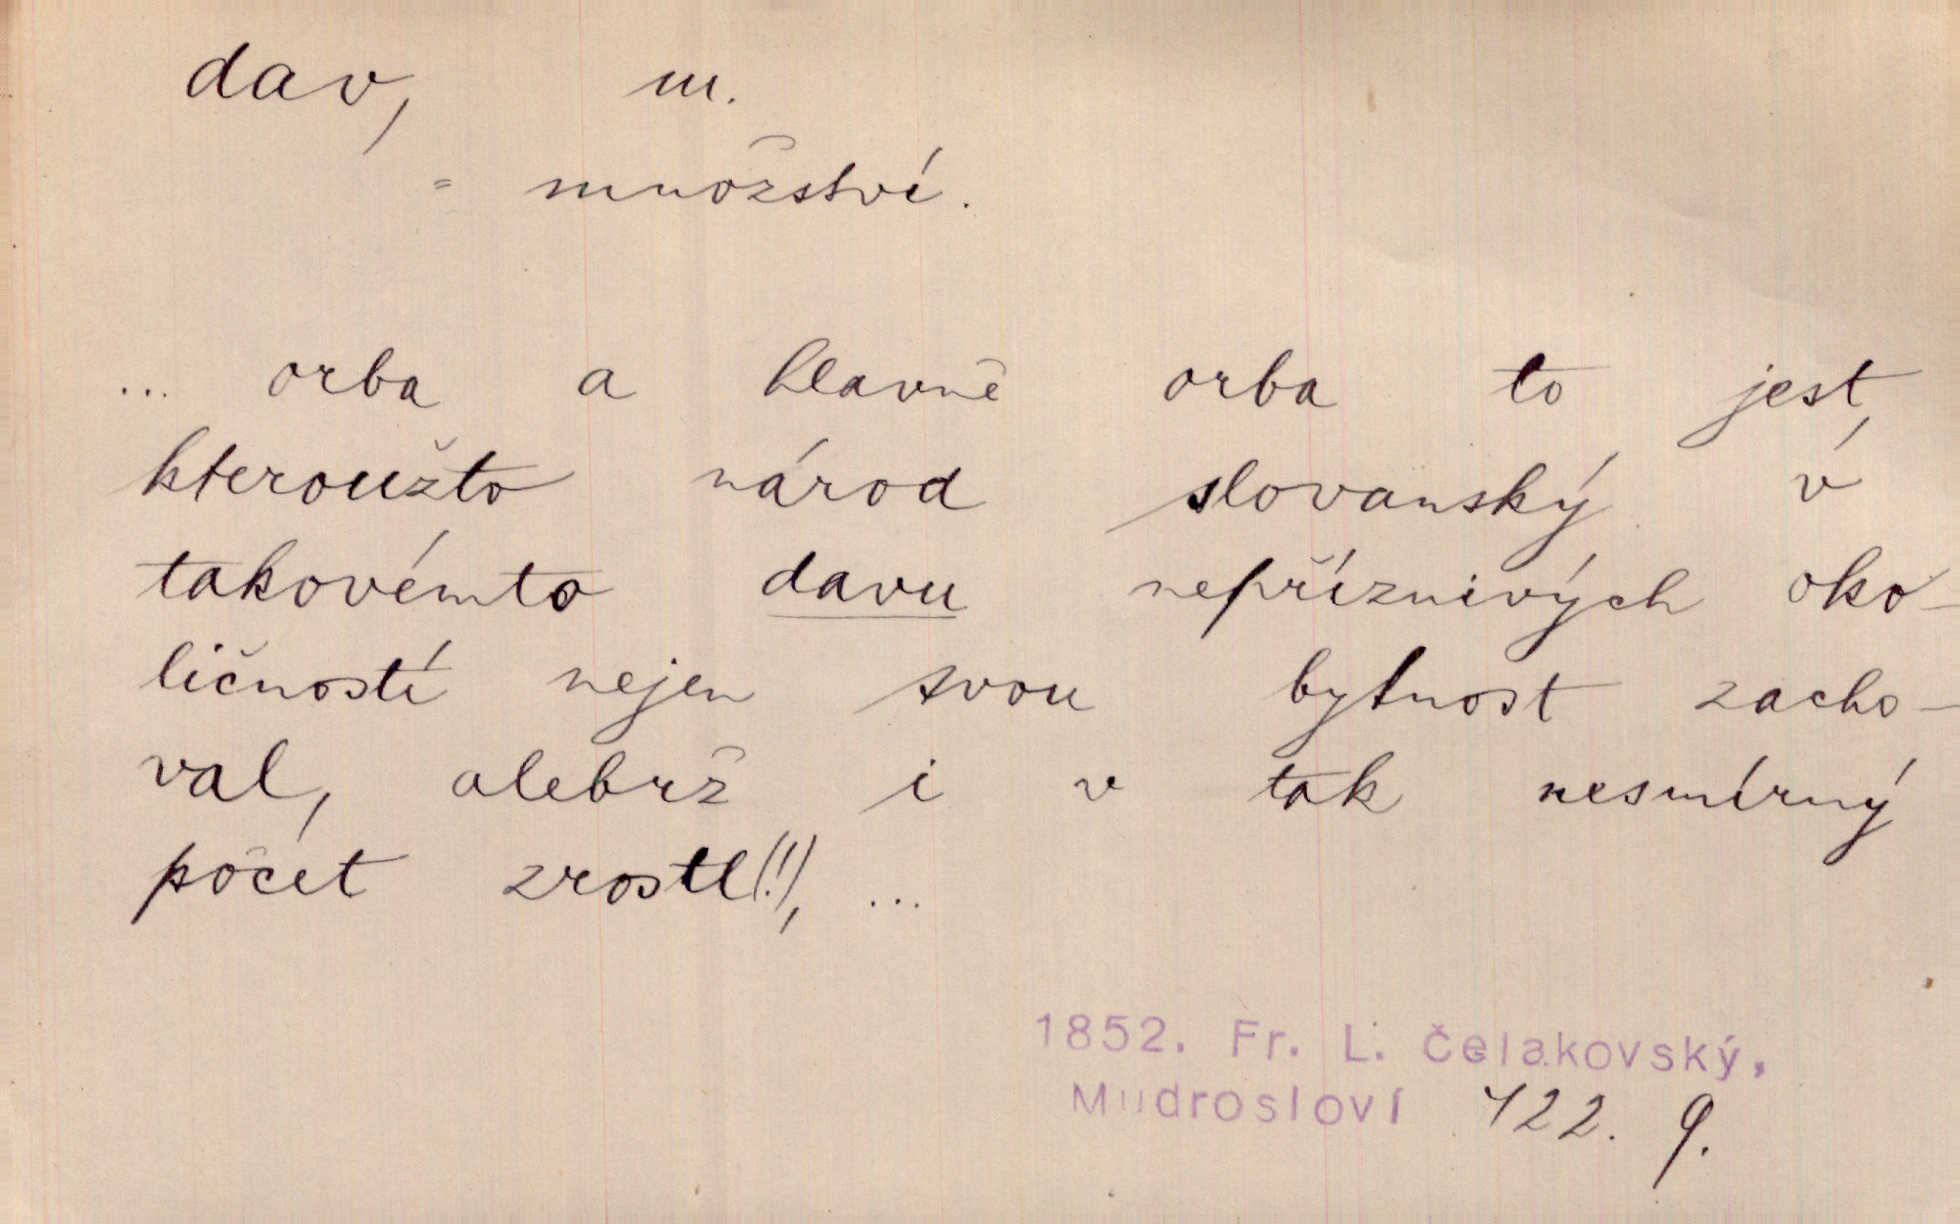 dav, m.
= množství.
... orba a hlavně orba to jest,
kteroužto národ slovanský v
takovémto davu nepříznivých oko-
ličností nejen svou bytnost zacho-
val, alebrž i v tak nesmírný
počet zrostl(!), ...
1852. Fr. L. Čelakovský,
Mudrosloví 422. 9.